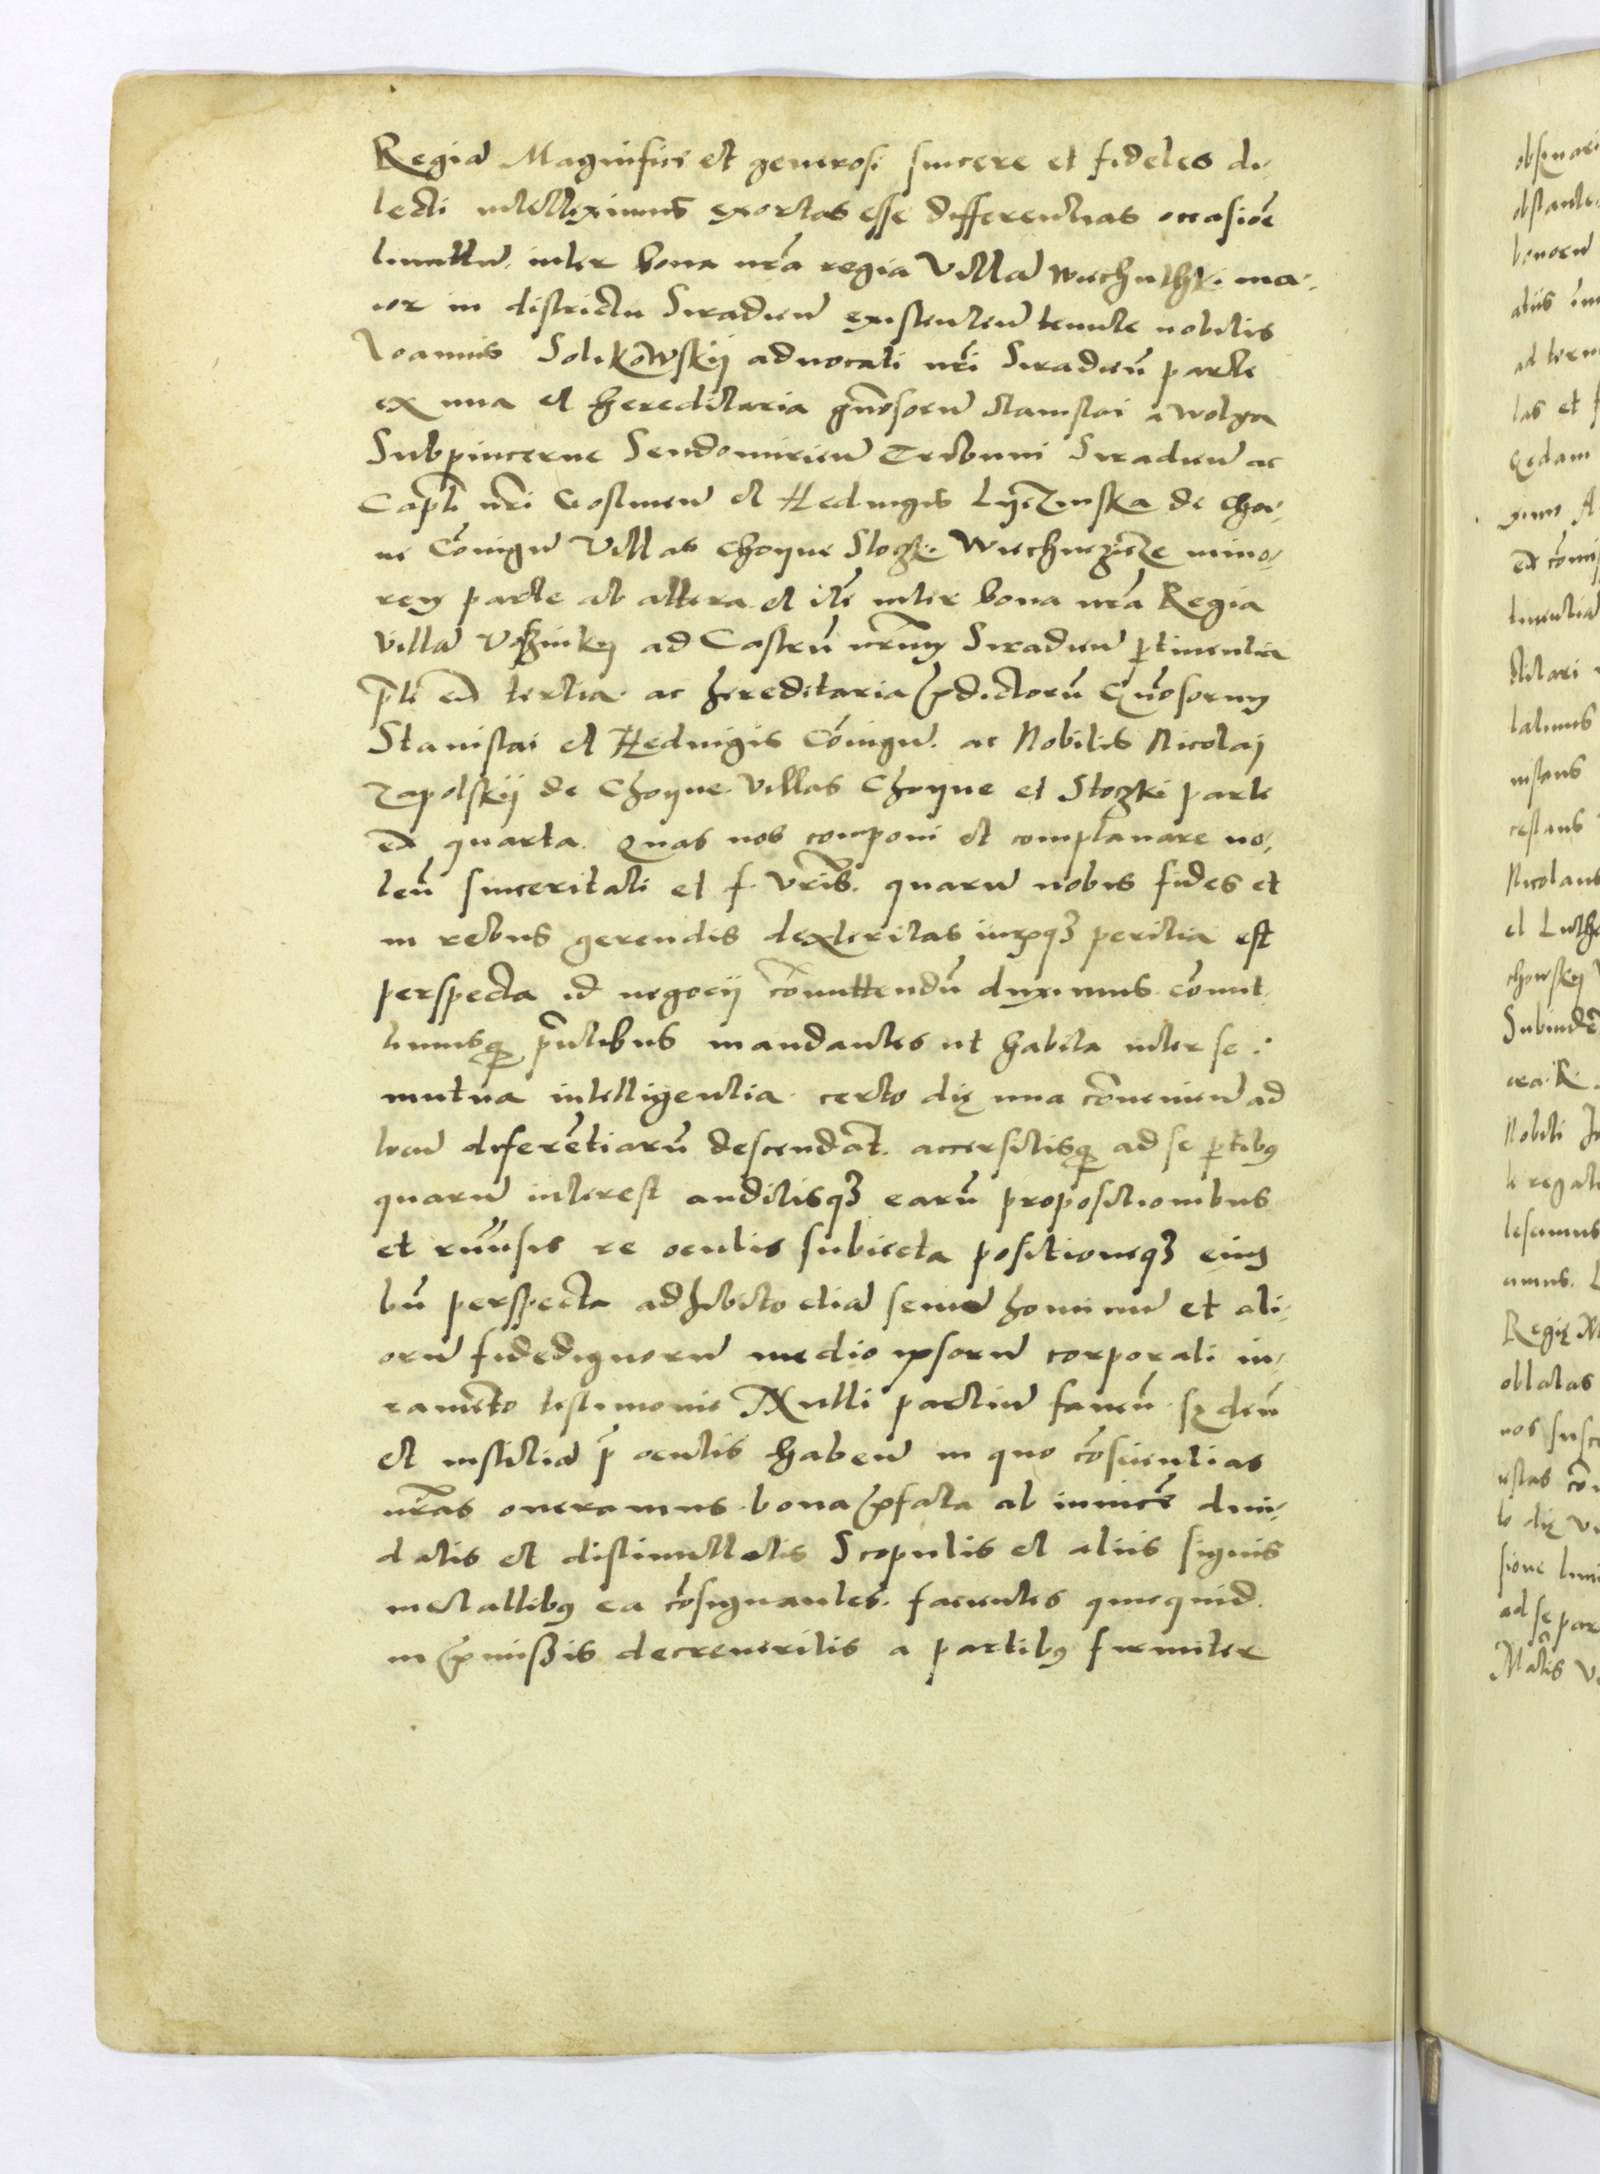 Regiā Magnifici et generosi sincere et fideles di-
lecti intelleximus exortas esse differentias occasiōe
limitū inter bona nr̄a regia Villā Wiechuthki ma-
ior in districtu Siradieñ existenteñ tenute nobilis
Joannis Solikowskij advocati nr̄i Siradieñ parte
ex una et hereditaria gñosorū Stanislai a Wolya
Subpincerne Sendomirieñ Tribuni Siradieñ ac
Capt̄i nr̄i Gostineñ et Hedvigis de Choy-
ne Cōiugū Villas Choyne Stoczki mino-
rem parte ab altera et itē inter bona nr̄a Regia
Villā ad Castrū nr̄um Siradieñ ꝑtinentia
p̄te eā tertia ac hereditaria p̄dictorū Gñosorum
Stanislai et Hedvigis Cōiugū ac Nobilis Nicolaj
Zapolskij de Choyne Villas Choyne et Stoczki parte
eā quarta. Quas nos componi et complanare vo-
leñ sinceritati et f. vr̄is. quarū nobis fides et
in rebus gerendis dexteritas iurꝫqꝫ peritia est
perspecta id negocij cōmittendū duximus cōmit
timusqꝫ p̄ntibus mandantes ut habita inter se
mutua intelligentia certo dię una cōvenieñ ad
locū diferētiarū descendāt. accersitisqꝫ ad se ꝑtibus
quarū interest auditisqꝫ earū propositionibus
et rursus re oculis subiecta positioneqꝫ eius
bñ perspecta adhibito etiā seniū hominū et ali-
orū fidedignorū medio ipsorū corporali iu-
ramēto testimonio Nulli partiū faveñ sꝫ deū
et iustitiā p̄ oculis habeñ in quo cōscientias
vr̄as oneramus bona p̄fata ab invicē divi-
datis et distinuetis Scopulis et aliis signis
metalibus ea cōsignantes. facientes quicquid
in p̄missis decreveritis a partibus firmiter